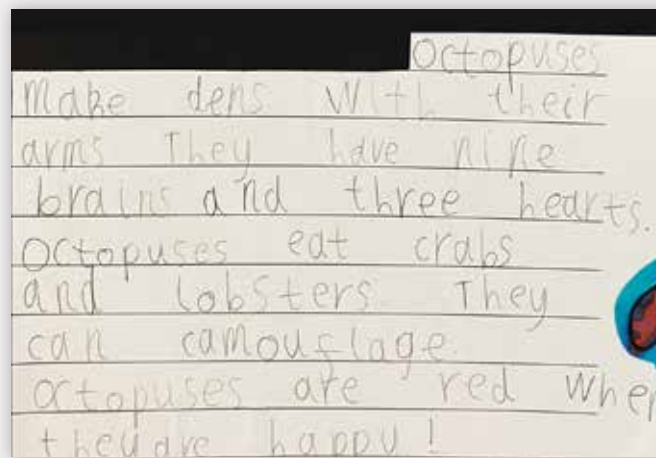 Octopuses
make dens with their
arms They have nine
brains and three hearts.
Octopuses eat crabs
and lobsters They
can camouflage.
octopuses are red when
they are happy!